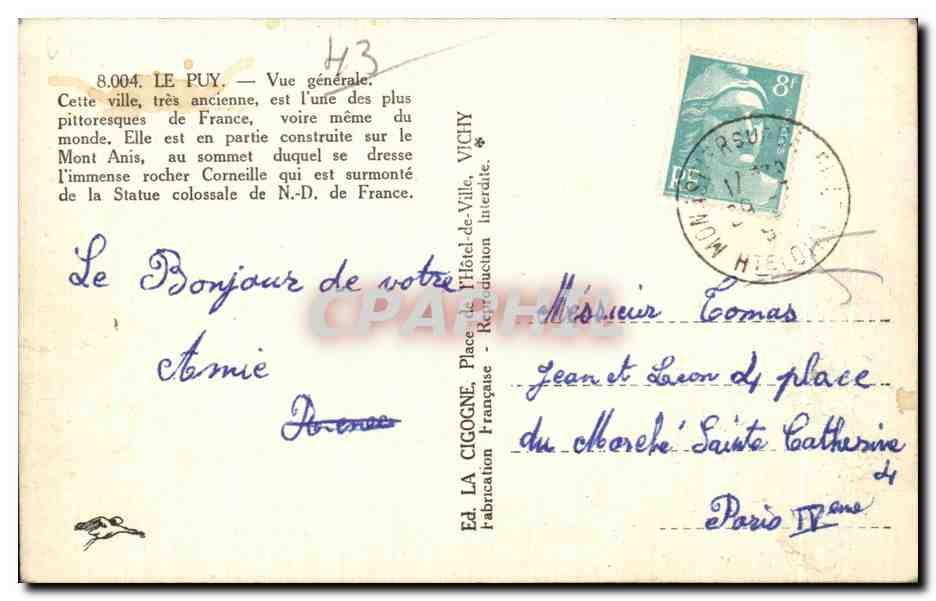 43
8.004. LE PUY. — Vue générale.
Cette ville, très ancienne, est l'une des plus
pittoresques de France, voire même du
monde. Elle est en partie construite sur le
Mont Anis, au sommet duquel se dresse
l'immense rocher Corneille qui est surmonté
de la Statue colossale de N.-D. de France.
Le Bonjour de votre
Amie
Ed. LA CIGOGNE, Place de l'Hôtel-de-Ville, VICHY
Fabrication Française - Reproduction Interdite. *
8f
Méssieur Tomas
Jean et Leon 4 place
du Marché Sainte Catherine
4
Paris IVeme
CPARPHIL